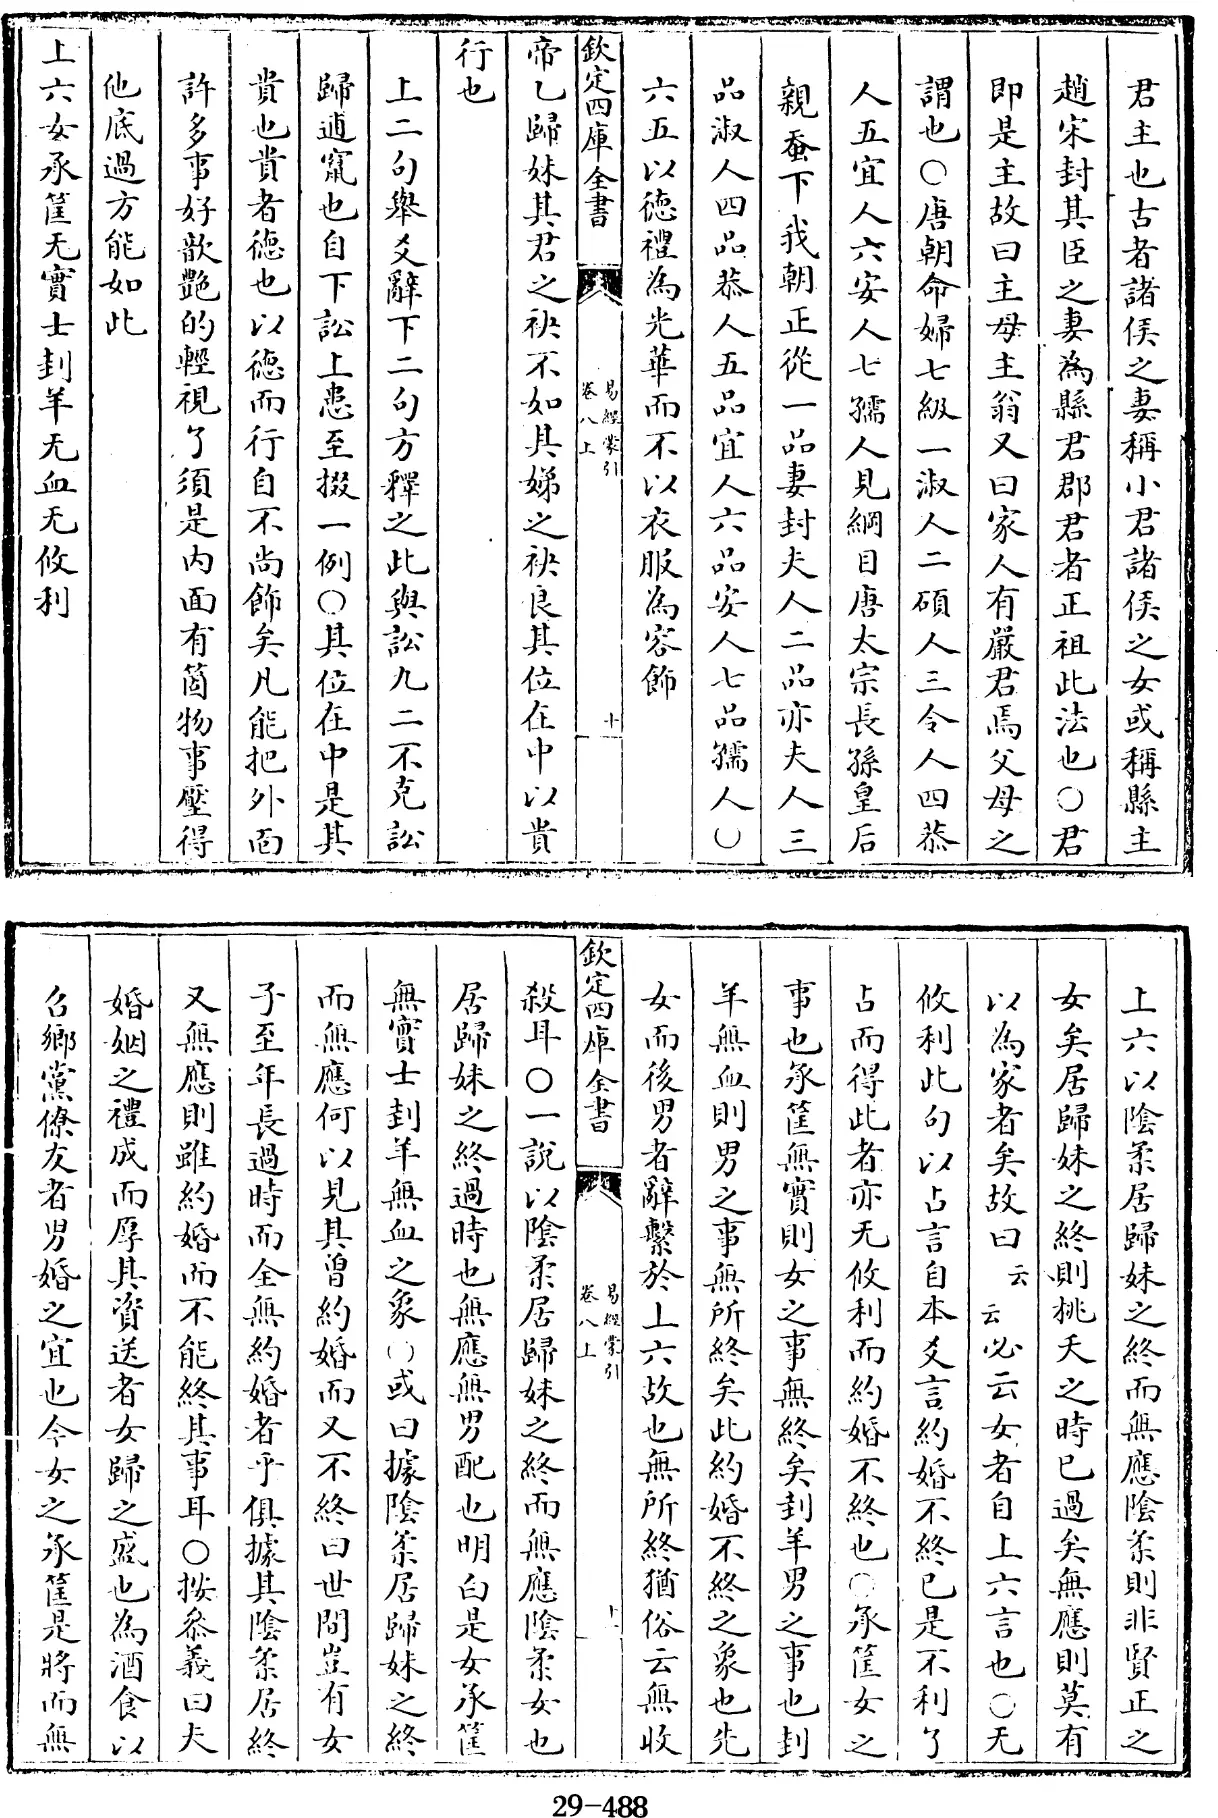 君主也古者諸侯之妻稱小君諸侯之女或稱縣主
趙宋封其臣之妻為縣君郡君者正祖此法也○君
即是主故曰主母主翁又曰家人有嚴君焉父母之
謂也○唐朝命婦七級一淑人二碩人三令人四恭
人五宜人六安人七孺人見綱目唐太宗長孫皇后
親蚕下我朝正從一品妻封夫人二品亦夫人三
品淑人四品恭人五品宜人六品安人七品孺人○
六五以徳禮為光華而不以衣服為容飾
欽定四庫全書
易經蒙引
卷八上
十
帝乙歸妹其君之袂不如其娣之袂良其位在中以貴
行也
上二句舉爻辭下二句方釋之此與訟九二不克訟
歸逋竄也自下訟上患至掇一例○其位在中是其
貴也貴者徳也以徳而行自不尚飾矣凡能把外面
許多事好歆艷的輕視了須是内面有箇物事壓得
他底過方能如此
上六女承筐无實士刲羊无血无攸利
上六以陰柔居歸妹之終而無應陰柔則非賢正之
女矣居歸妹之終則桃夭之時已過矣無應則莫有
以為家者矣故曰云云必云女者自上六言也○无
攸利此句以占言自本爻言約婚不終已是不利了
占而得此者亦无攸利而約婚不終也○承筐女之
事也承筐無實則女之事無終矣刲羊男之事也刲
羊無血則男之事無所終矣此約婚不終之象也先
女而後男者辭繫於上六故也無所終猶俗云無收
欽定四庫全書
易經蒙引
卷八上
殺耳○一說以陰柔居歸妹之終而無應陰柔女也
居歸妹之終過時也無應無男配也明白是女承筐
無實士刲羊無血之象○或曰據陰柔居歸妹之終
而無應何以見其曾約婚而又不終曰世間豈有女
子至年長過時而全無約婚者乎俱據其陰柔居終
又無應則雖約婚而不能終其事耳○按叅義曰夫
婚姻之禮成而厚其資送者女歸之盛也為酒食以
召鄉黨僚友者男婚之宜也今女之承筐是將而無
29-488